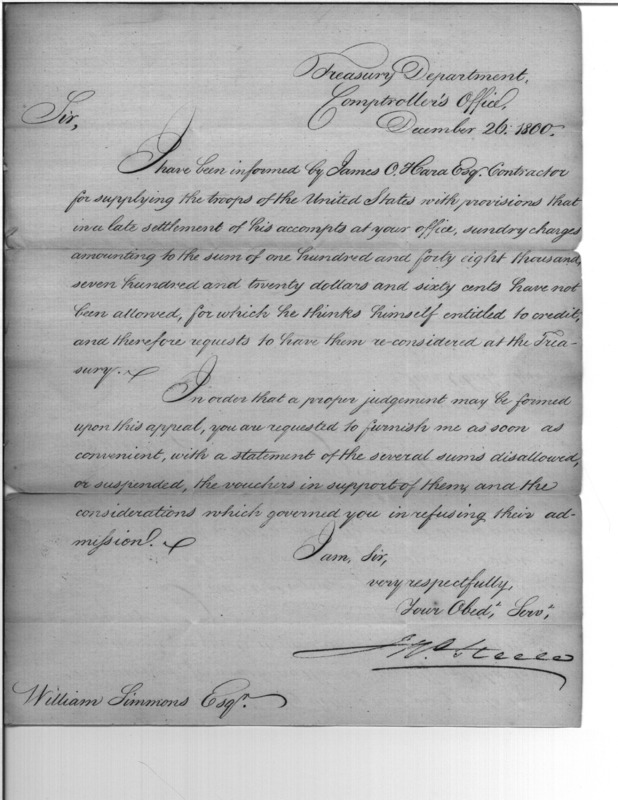 Treasury Department,
Comptroller's Office,
December 26. 1800.
Sir,
I have been informed by James O.Hara Esq. Contractor
for supplying the troops of the United States with provisions that
in a late settlement of his accompts at your office, sundry charges
amounting to the sum of one hundred and forty eight thousand,
seven hundred and twenty dollars and sixty cents have not
been allowed, for which he thinks himself entitled to credit,
and therefore requests to have them re-considered at the Trea-
sury.
In order that a proper judgement may be formed
upon this appeal, you are requested to furnish me as soon as
convenient, with a statement of the several sums disallowed,
or suspended, the vouchers in support of them, and the
considerations which governed you in refusing their ad-
mission.
I am, Sir,
very respectfully,
Your Obed.t Serv.t
Jno. Steele
William Simmons Esqr.